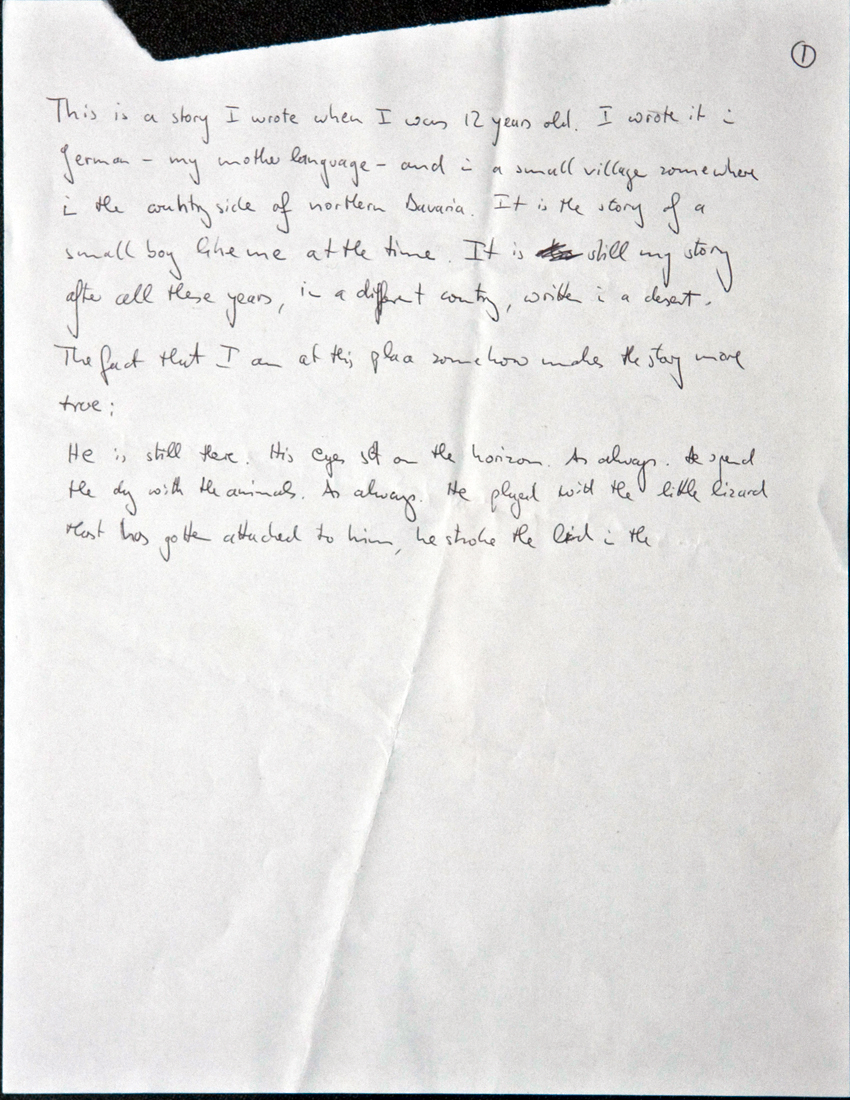 ①
This is a story I wrote when I was 12 years old. I wrote it in
German - my mother language - and in a small village somewhere
in the country side of northern Bavaria. It is the story of a
small boy like me at the time. It is still my story
after all these years, in a different country, written in a desert.
The fact that I am at this place somehow makes the story more
true:
He is still there. His eyes set on the horizon. As always. He spend
the day with the animals. As always. He played with the little lizard
that has gotten attached to him, he stroke the bird in the